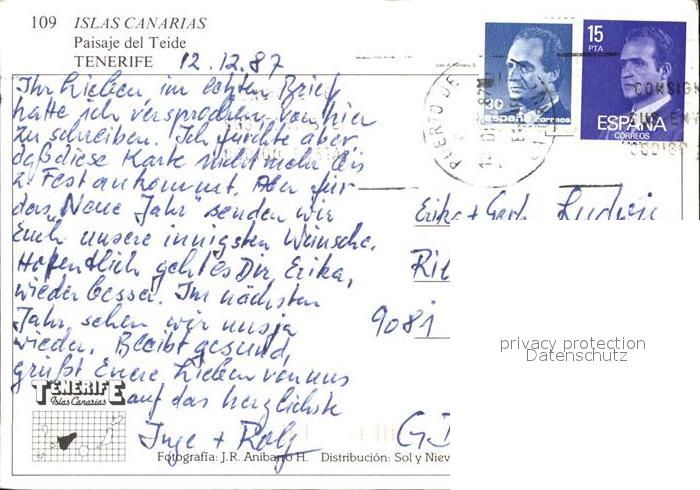 109 ISLAS CANARIAS
Paisaje del Teide
TENERIFE 12.12.87
Ihr Lieben im letzten Brief
hatte ich versprochen von hier
zu schreiben. Ich fürchte aber
daß diese Karte nicht mehr bis
z. Fest ankommt. Aber für
das "Neue Jahr" senden wir
Euch unsere innigsten Wünsche.
Hoffentlich geht es Dir, Erika,
wieder besser. Im nächsten
Jahr sehen wir uns ja
wieder. Bleibt gesund,
grüßt Euere Lieben von uns
auf das herzlichste
Inge + Rolf
TENERIFE
Islas Canarias
Fotografía: J.R. Anibarro H. Distribución: Sol y Niev
30
españa correos
15
PTA
ESPAÑA
CORREOS
PUERTO DE
CONSIGN
Erika + Gerh. Ludwig
9081
privacy protection
Datenschutz